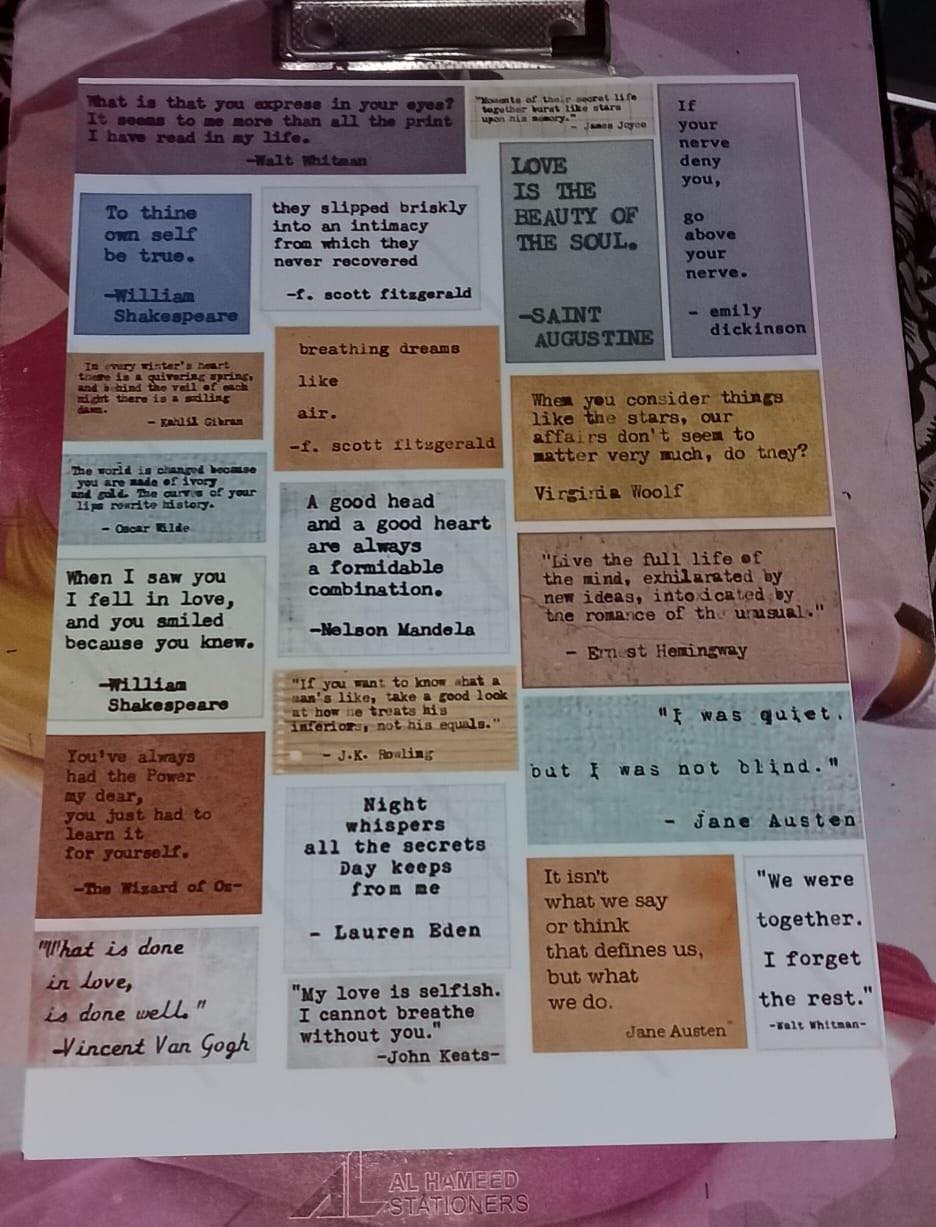 What is that you express in your eyes?
It seems to me more than all the print
I have read in my life.
—Walt Whitman
"Moments of their secret life
together burst like stars
upon his memory."
- James Joyce
If
your
nerve
deny
you,
go
above
your
nerve.
- emily
dickinson
LOVE
IS THE
BEAUTY OF
THE SOUL.
—SAINT
AUGUSTINE
To thine
own self
be true.
—William
Shakespeare
they slipped briskly
into an intimacy
from which they
never recovered
—f. scott fitzgerald
In every winter's heart
there is a quivering spring,
and behind the veil of each
night there is a smiling
dawn.
- Kahlil Gibran
breathing dreams
like
air.
—f. scott fitzgerald
When you consider things
like the stars, our
affairs don't seem to
matter very much, do they?
Virginia Woolf
The world is changed because
you are made of ivory
and gold. The curves of your
lips rewrite history.
- Oscar Wilde
A good head
and a good heart
are always
a formidable
combination.
—Nelson Mandela
"Live the full life of
the mind, exhilarated by
new ideas, intoxicated by
the romance of the unusual."
- Ernest Hemingway
When I saw you
I fell in love,
and you smiled
because you knew.
—William
Shakespeare
"If you want to know what a
man's like, take a good look
at how he treats his
inferiors, not his equals."
- J.K. Rowling
"I was quiet.
but I was not blind."
- Jane Austen
You've always
had the Power
my dear,
you just had to
learn it
for yourself.
—The Wizard of Oz—
Night
whispers
all the secrets
Day keeps
from me
- Lauren Eden
It isn't
what we say
or think
that defines us,
but what
we do.
Jane Austen"
"We were
together.
I forget
the rest."
-Walt Whitman-
"What is done
in love,
is done well."
—Vincent Van Gogh
"My love is selfish.
I cannot breathe
without you."
—John Keats—
AL HAMEED
STATIONERS